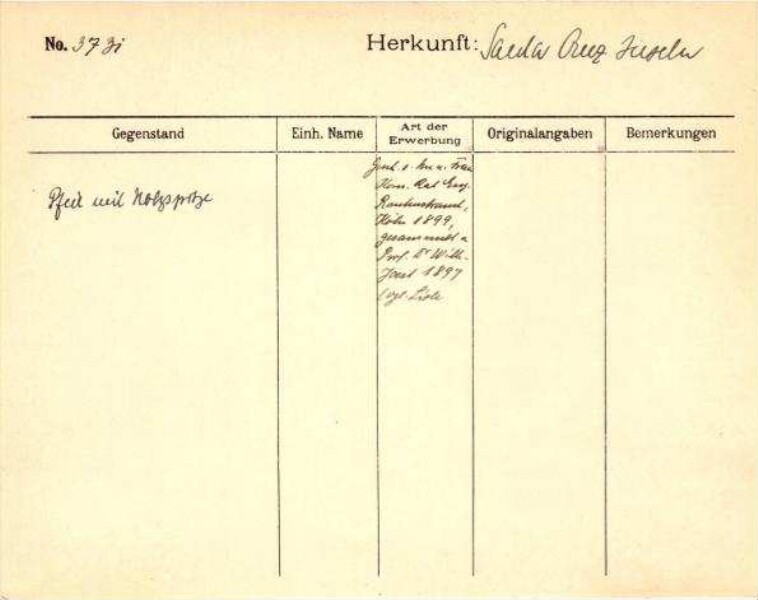 No. 37 zi
Herkunft: Santa Cruz Inseln
Gegenstand
Einh. Name
Art der
Erwerbung
Originalangaben
Bemerkungen
Pfeil mit Holzspitze
Gesch. v. Frau
Kom. Rat Eug.
Rautenstrauch,
Köln 1899,
gesammelt v.
Prof. Dr Wilh.
Joest 1897
(vgl. Liste